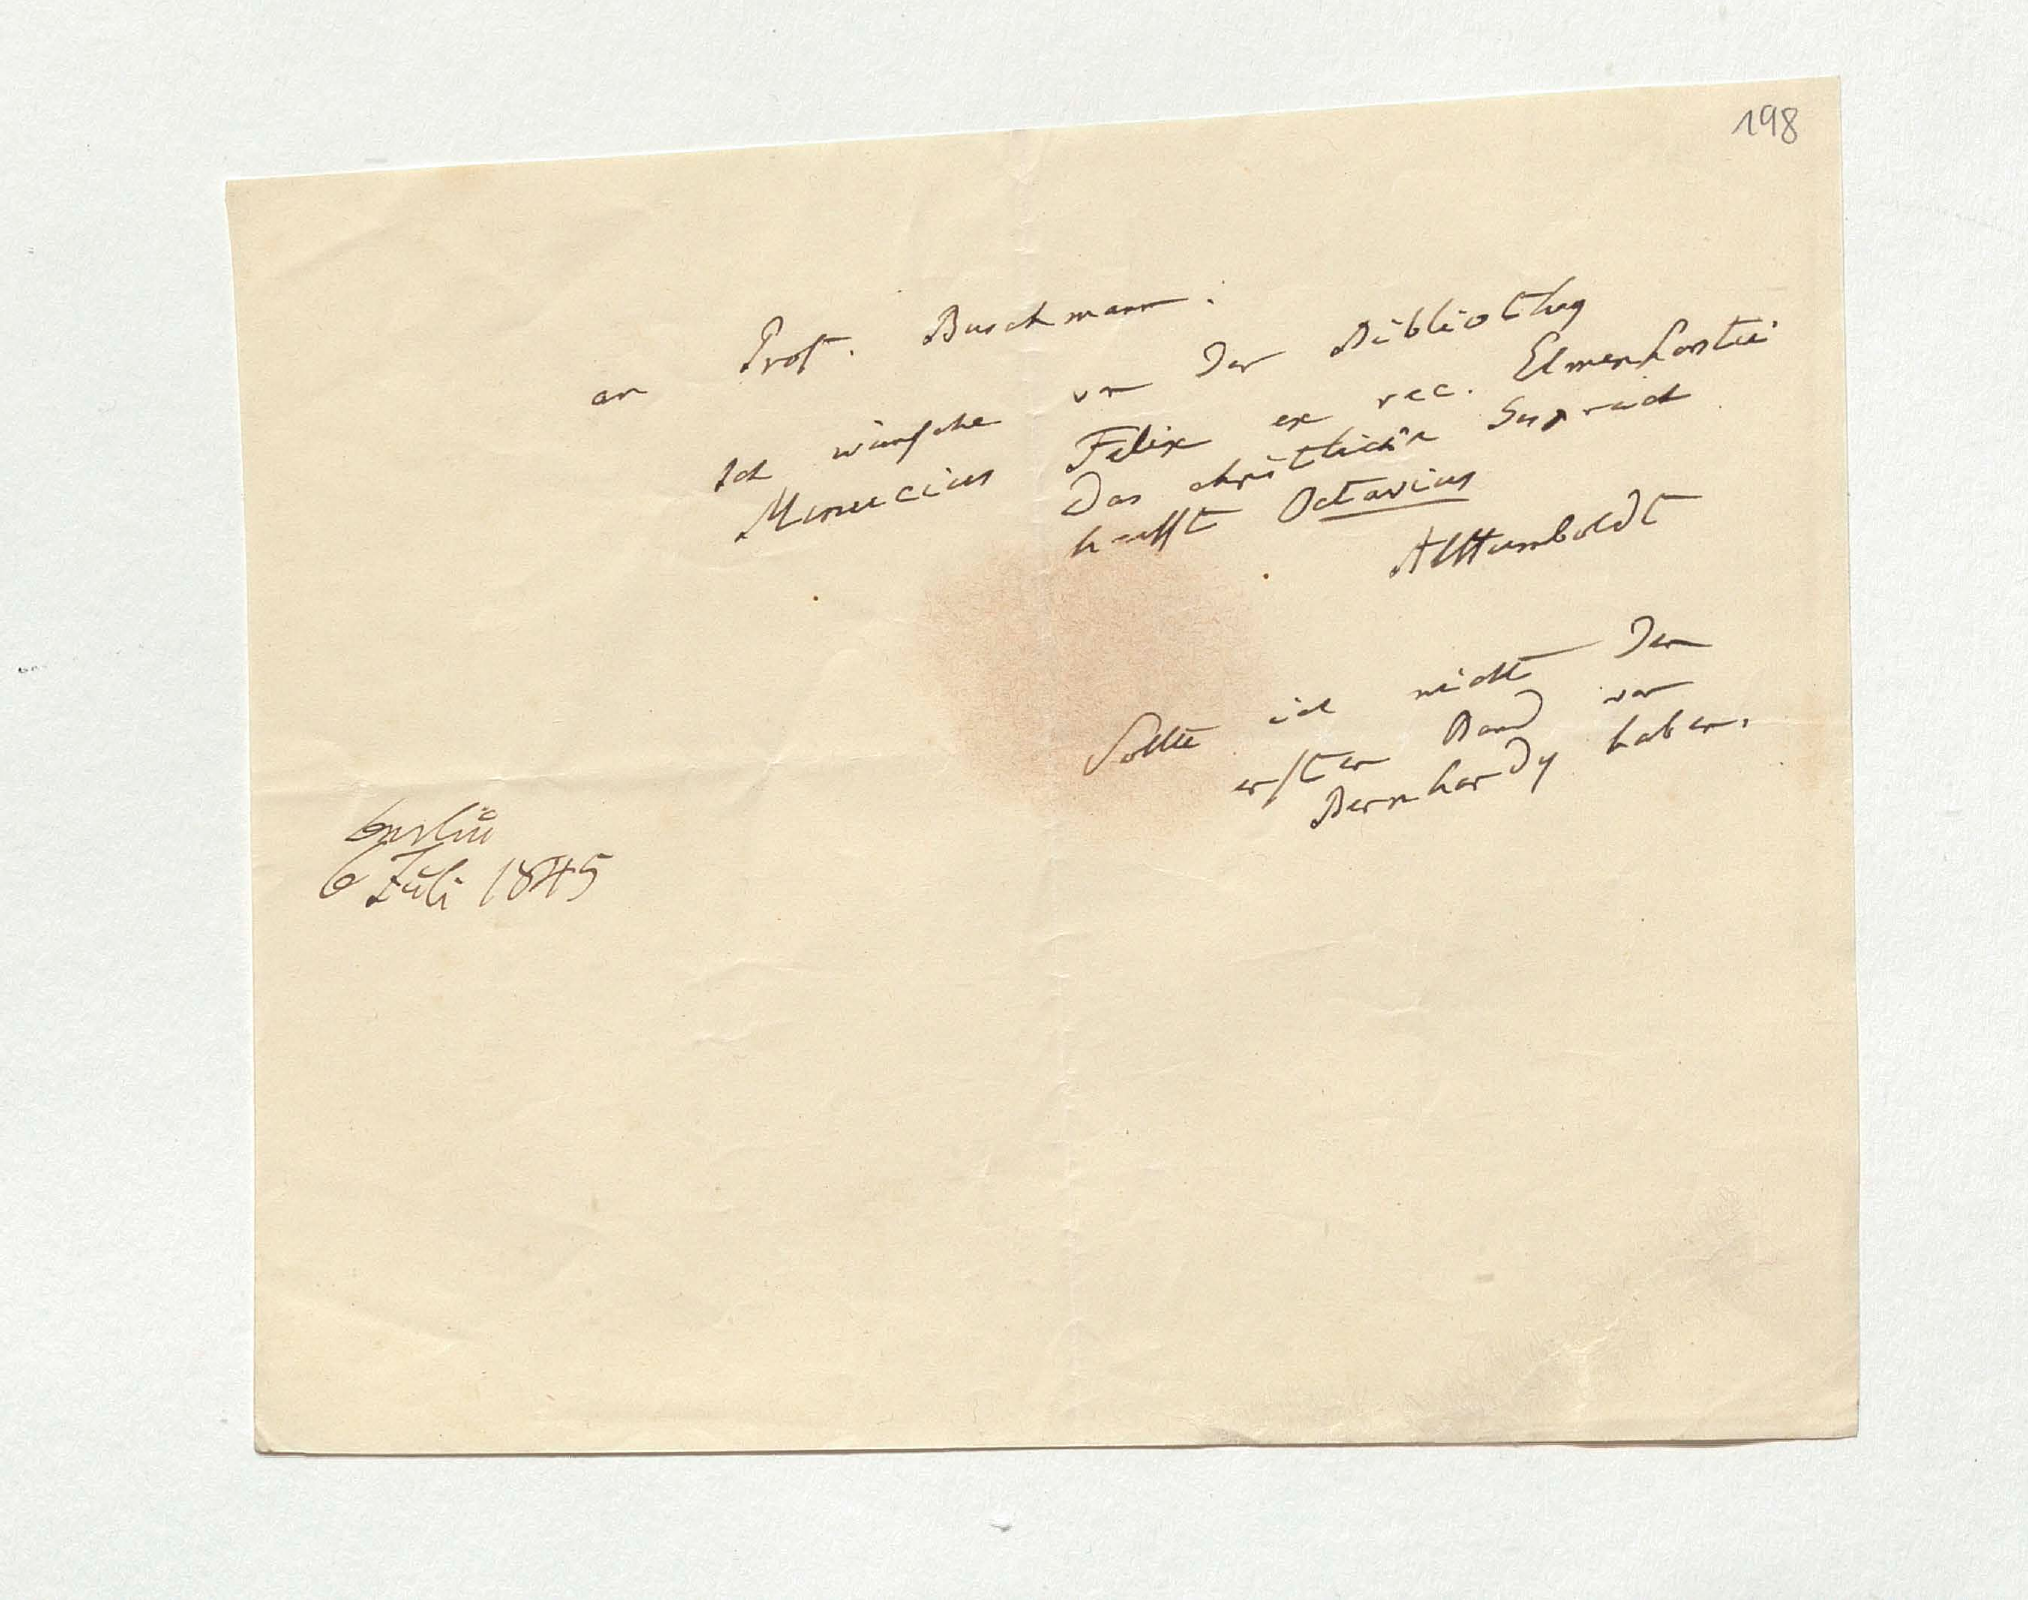 198
an Prof. Buschmann:
Ich wünsche von der Bibliotheg
Minucius Felix ex rec. Elmenhorstii
Das christliche Gespräch
heisst Octavius
AlHumboldt
Sollte ich nicht den
ersten Band von
Bernhardy haben.
Berlin
6 Juli 1845